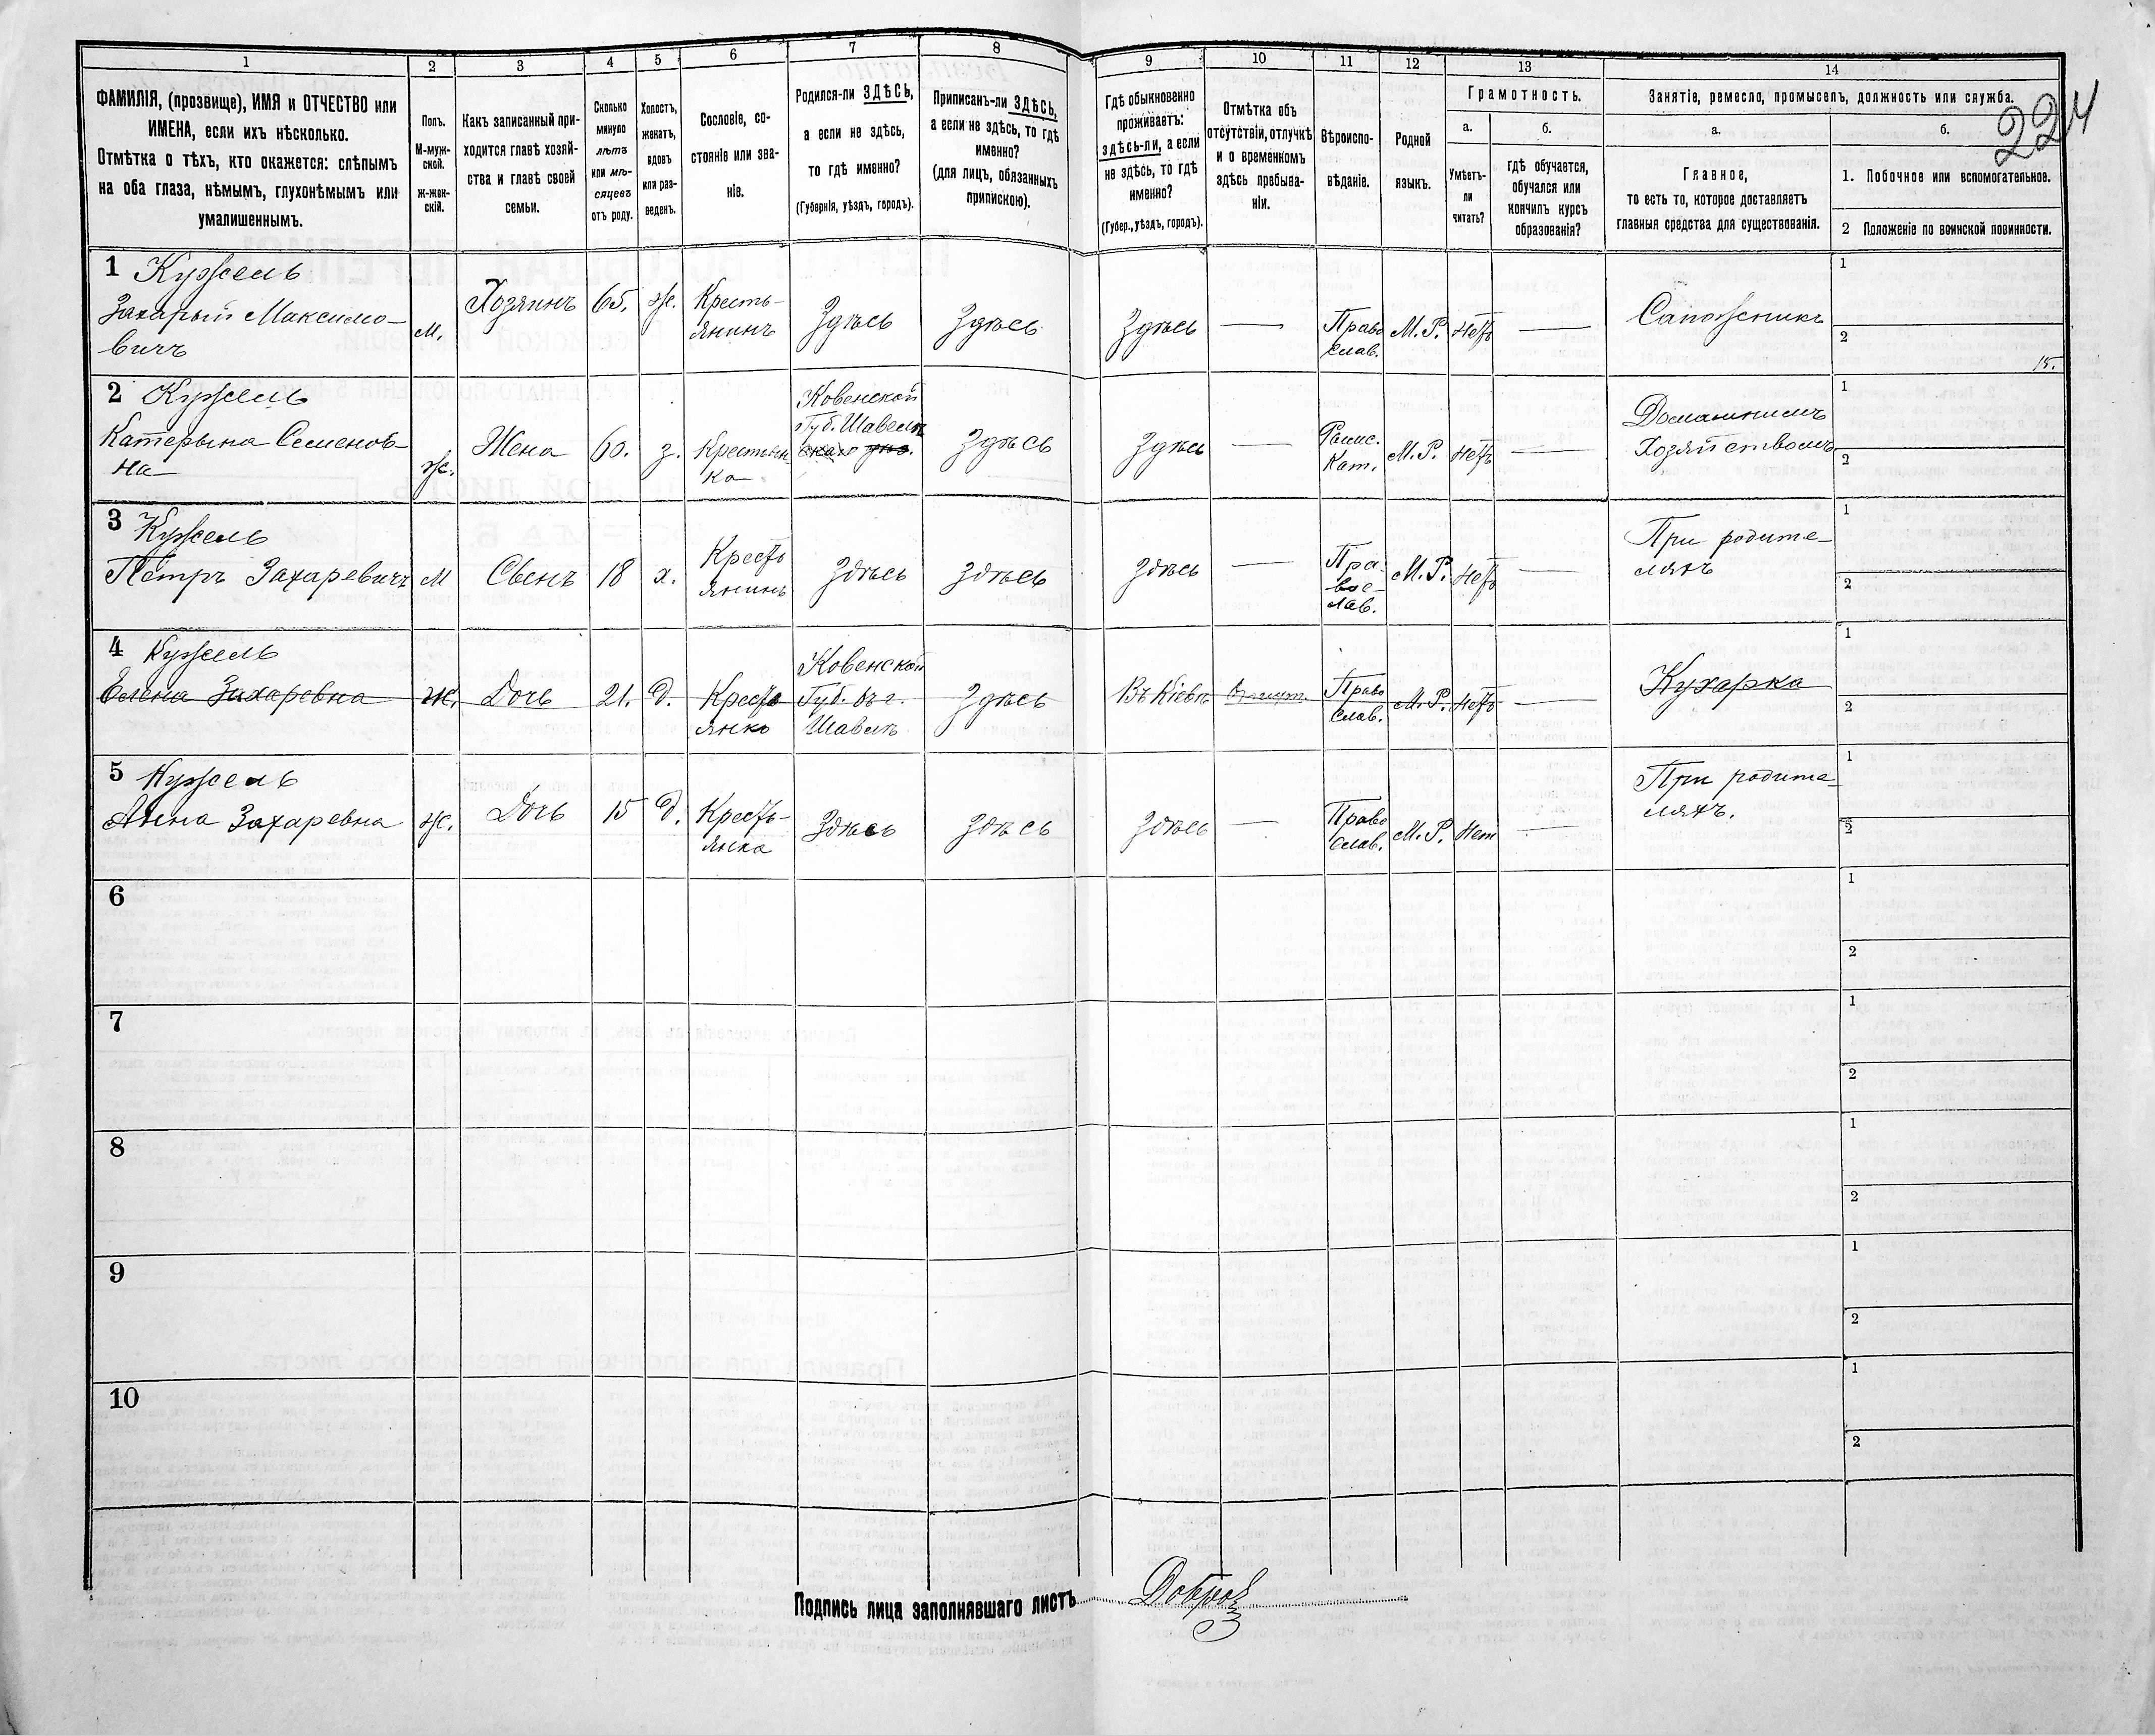 1
2
3
4
5
6
7
8
9
10
11
12
13
14
224
ФАМИЛІЯ, (прозвище), ИМЯ и ОТЧЕСТВО или
ИМЕНА, если ихъ нѣсколько.
Отмѣтка о тѣхъ, кто окажется: слѣпымъ
на оба глаза, нѣмымъ, глухонѣмымъ или
умалишеннымъ.
Полъ.
М-муж-
ской.
ж-жен-
скій.
Какъ записанный при-
ходится главѣ хозяй-
ства и главѣ своей
семьи.
Сколько
минуло
лѣтъ
или мѣ-
сяцевъ
отъ роду.
Холостъ,
женатъ,
вдовъ
или раз-
веденъ.
Сословіе, со-
стояніе или зва-
ніе.
Родился-ли ЗДѢСЬ,
а если не здѣсь,
то гдѣ именно?
(Губернія, уѣздъ, городъ).
Приписанъ-ли ЗДѢСЬ,
а если не здѣсь, то гдѣ
именно?
(для лицъ, обязанныхъ
припискою).
Гдѣ обыкновенно
проживаетъ:
здѣсь-ли, а если
не здѣсь, то гдѣ
именно?
(Губер., уѣздъ, городъ).
Отмѣтка объ
отсутствіи, отлучкѣ
и о временномъ
здѣсь пребыва-
ніи.
Вѣроиспо-
вѣданіе.
Родной
языкъ.
Грамотность.
а.
Умѣетъ-
ли
читать?
б.
гдѣ обучается,
обучался или
кончилъ курсъ
образованія?
Занятіе, ремесло, промыселъ, должность или служба.
а.
Главное,
то есть то, которое доставляетъ
главныя средства для существованія.
б.
1. Побочное или вспомогательное.
2 Положеніе по воинской повинности.
1 Кужель
Захарый Максимо-
вичъ
м.
Хозяинъ
65.
ж.
Кресть-
янинъ
Здѣсь
Здѣсь
Здѣсь
—
Право
слав.
М. Р.
Нетъ
—
Сапожникъ
1
2
15.
2 Кужель
Катерына Семенов-
на
ж.
Жена
60.
з.
Крестьян-
ка
Ковенской
Губ. Шавель
Здѣсь
Здѣсь
—
Римс.
Кат.
М. Р.
Нетъ
Домашнимъ
Хозяйствомъ
1
2
3 Кужель
Петръ Захаревичъ
М
Свенъ
18
х.
Кресть
янинъ
Здѣсь
Здѣсь
Здѣсь
—
Пра
вос-
лав.
М. Р.
Нетъ
—
При родите-
ляхъ
1
2
4 Кужель
Елена Захаревна
ж.
Дочь
21.
д.
Кресть
янка
Ковенской
Губ. въ г.
Шавель
Здѣсь
Въ Кіевѣ
Право
слав.
М. Р.
Нетъ
—
Кухарка
1
2
5 Кужель
Анна Захаревна
ж.
Дочь
15
д.
Кресть-
янка
Здѣсь
Здѣсь
Здѣсь
—
Право
слав.
М. Р.
Нет
—
При родите-
ляхъ.
1
2
6
1
2
7
1
2
8
1
2
9
1
2
10
1
2
Подпись лица заполнявшаго листъ